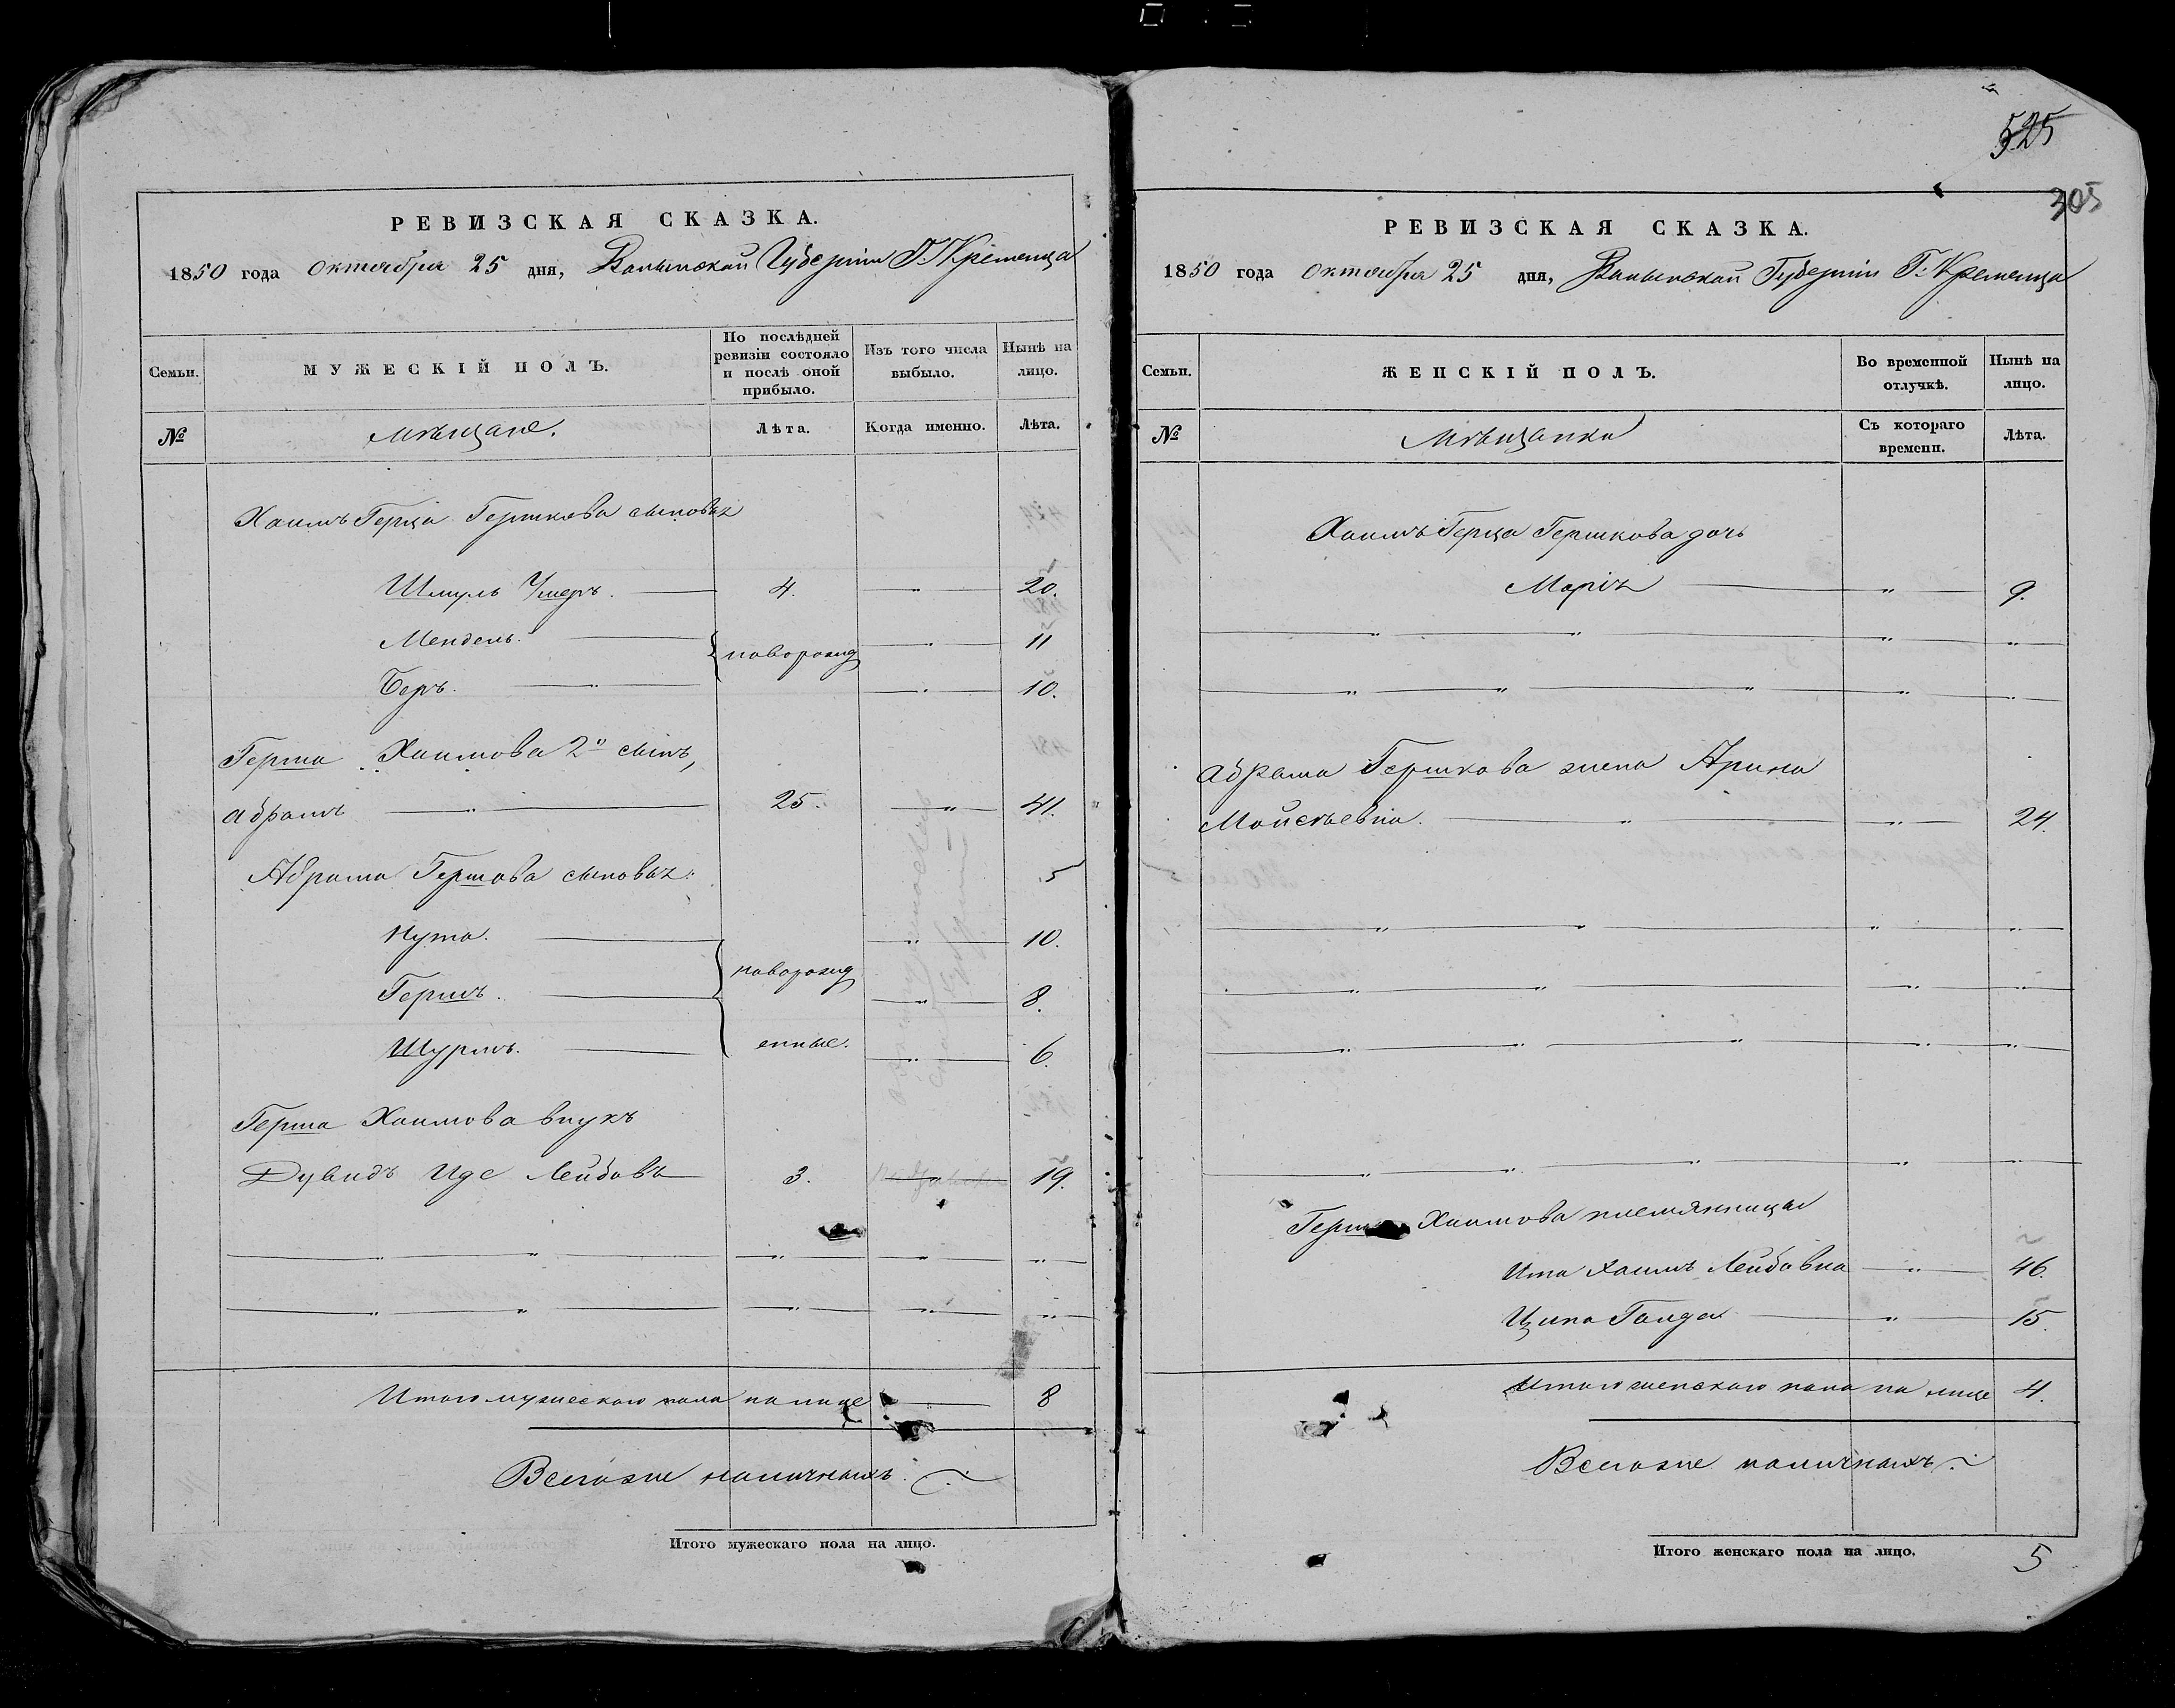 525
305
РЕВИЗСКАЯ СКАЗКА.
1850 года Октября 25 дня, Волынской Губерніи Г. Кременца
Семьи.
МУЖЕСКІЙ ПОЛЪ.
По послѣдней ревизіи состояло и послѣ оной прибыло.
Изъ того числа выбыло.
Нынѣ на лицо.
№
Мѣщане.
Лѣта.
Когда именно.
Лѣта.
Хаимъ Герца Гершкова сыновья
Шмуль 4. 20.
Мендель. новорожд 11
Беръ. 10.
Герша Хаимова 2й сынъ,
Абрамъ 25. 41.
Абрама Гершова сыновья: 5
Нута. 10.
Гершъ. новорожд 8.
Шулимъ. енные. 6.
Герша Хаимова внукъ
Дувидъ Иде Лейбовъ 3. 19.
Итого мужескаго пола на лице 8
Всѣ наличныхъ.
Итого мужескаго пола на лицо.
РЕВИЗСКАЯ СКАЗКА.
1850 года Октября 25 дня, Волынской Губерніи Г. Кременца
Семьи.
ЖЕНСКІЙ ПОЛЪ.
Во временной отлучкѣ.
Нынѣ на лицо.
№
Мѣщанки
Съ котораго времени.
Лѣта.
Хаимъ Герца Гершкова дочь
Марія 9.
Абрама Гершкова жена Арина
Мойсѣевна. 24.
Герша Хаимова племянницы
Ита Хаимъ Лейбовна 46.
Ципа Голда 15.
Итого женскаго пола на лице 4.
наличныхъ.
Итого женскаго пола на лицо. 5